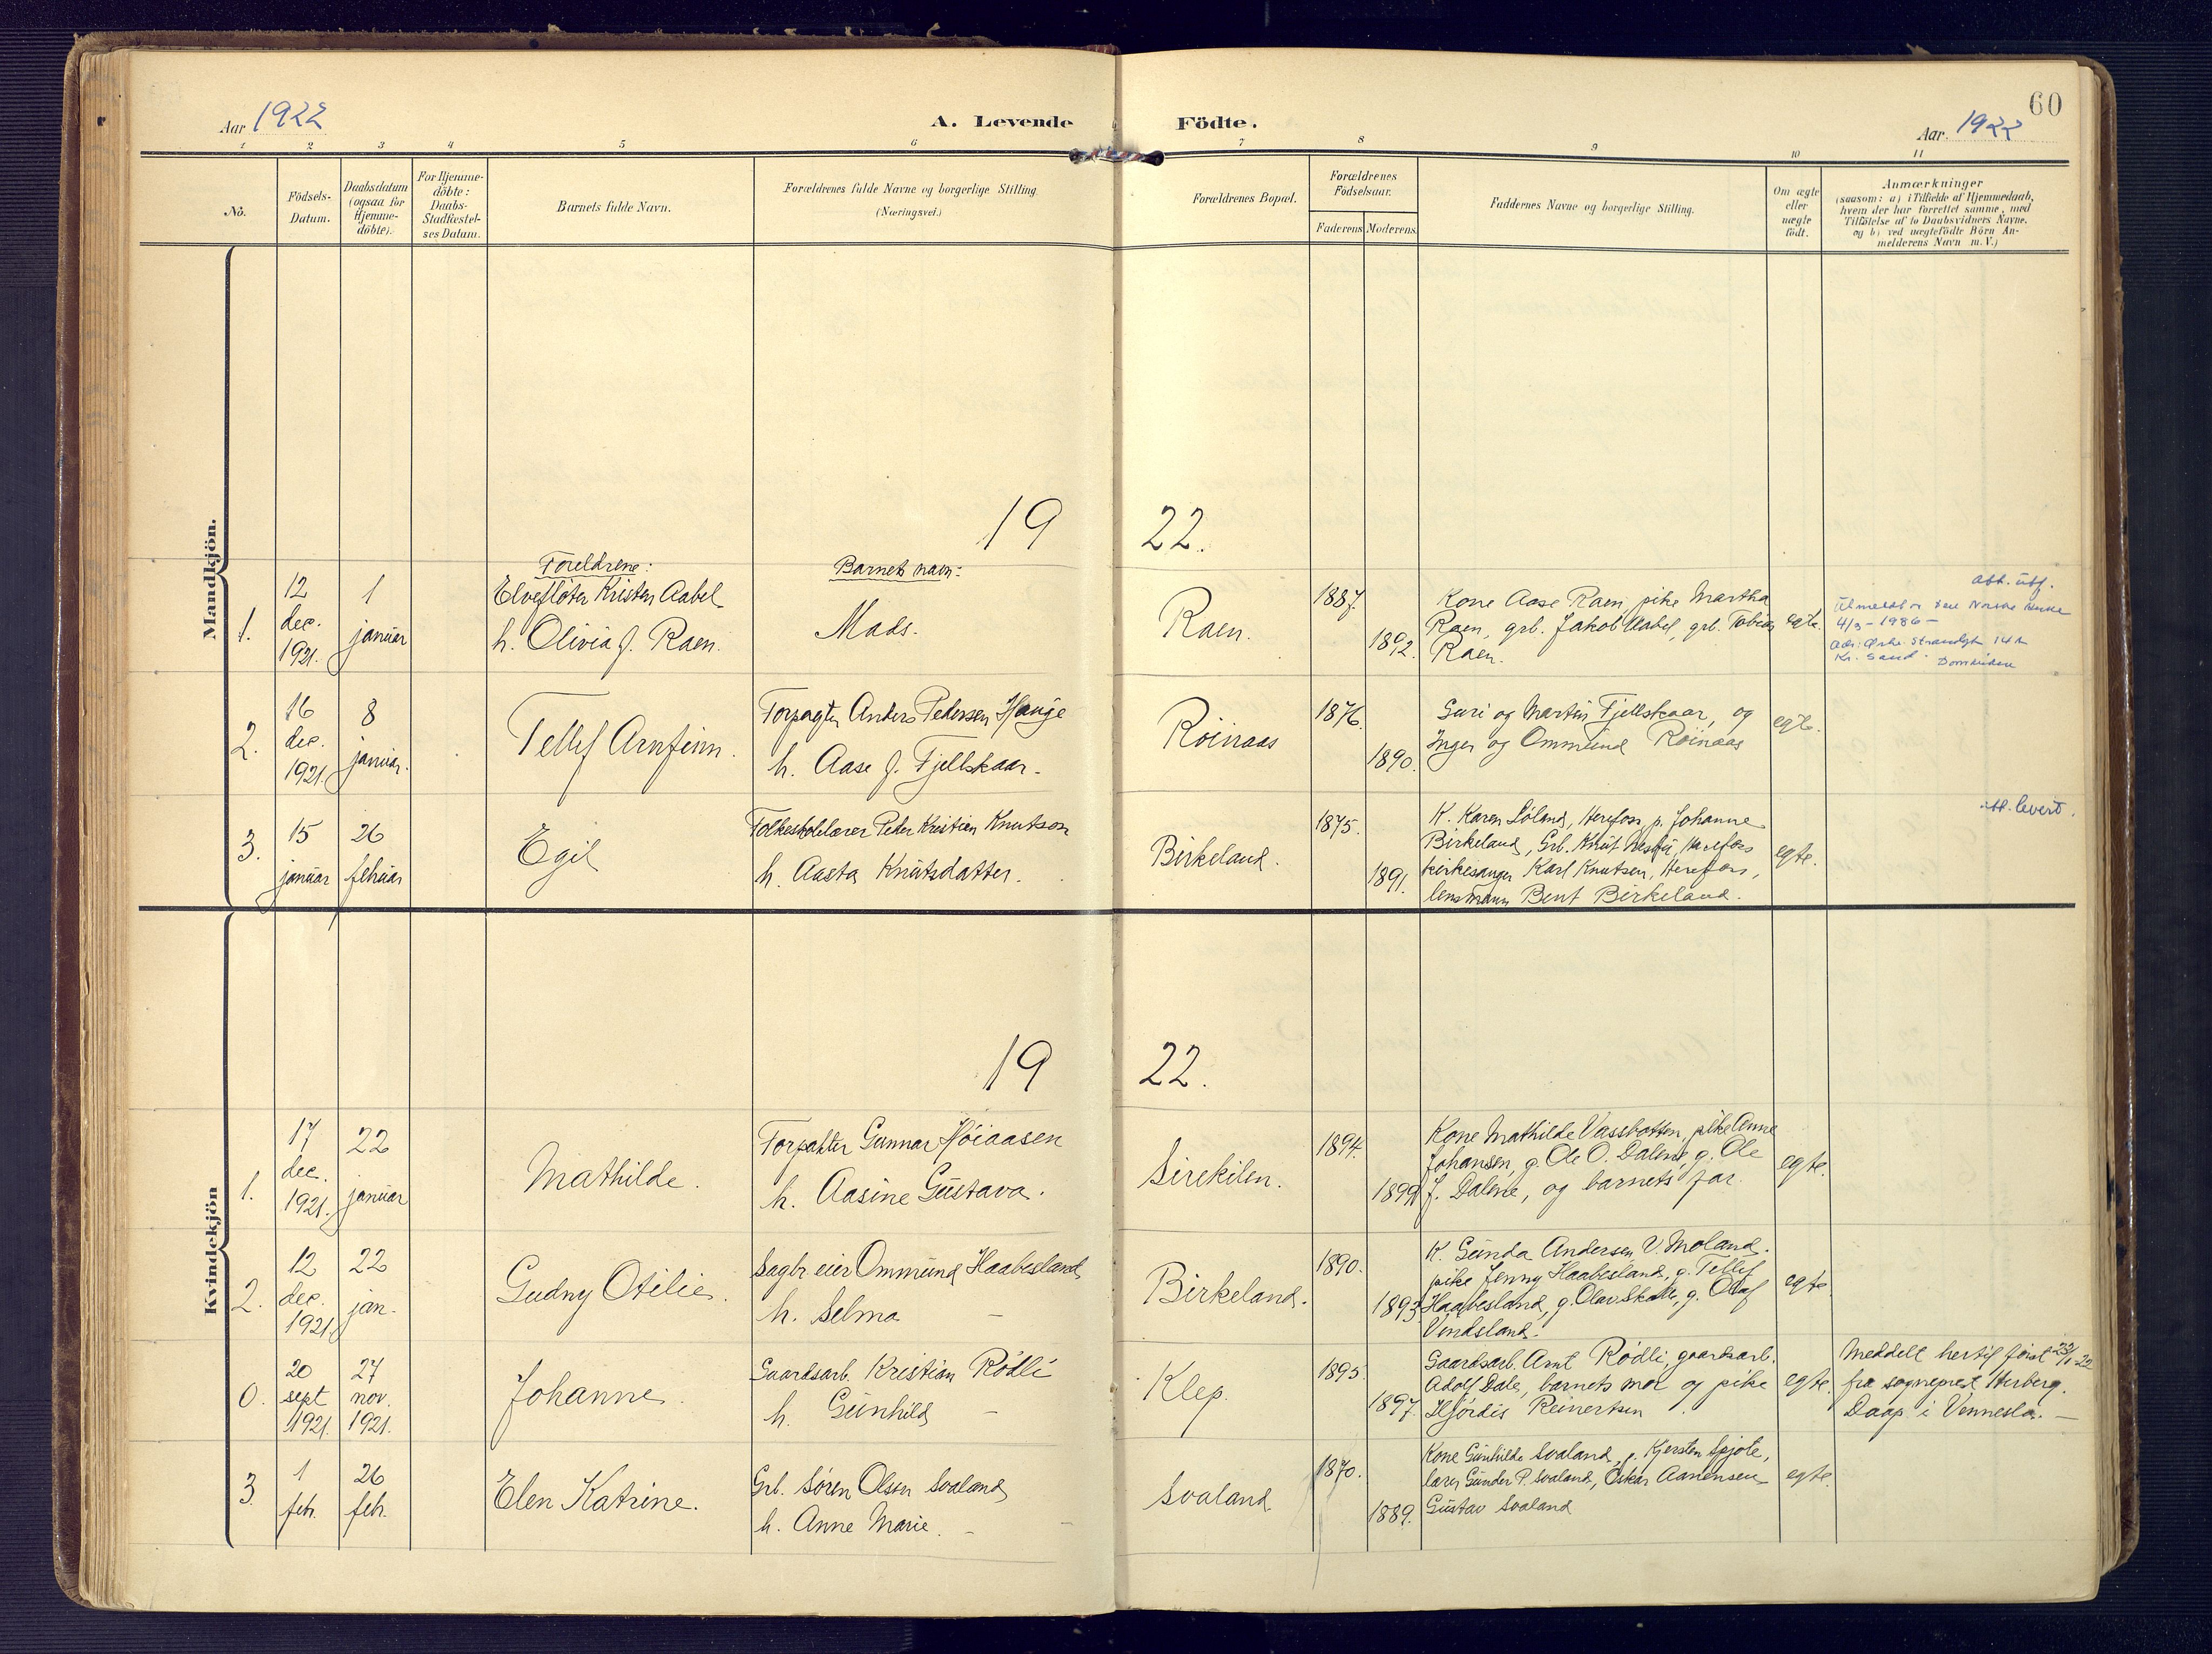 Aar 1922
A. Levende
Födte.
Aar. 1922
60
1 2 3 4 5 6 7 8 9 10 11
No.
Födsels-
Datum.
Daabsdatum
(ogsaa for
Hjemme-
döbte).
For Hjemme-
döbte:
Daabs-
Stadfæstel-
ses Datum.
Barnets fulde Navn.
Forældrenes fulde Navne og borgerlige Stilling.
(Næringsvei.)
Forældrenes Bopæl.
Forældrenes
Födselsaar.
Faderens
Moderens.
Faddernes Navne og borgerlige Stilling.
Om ægte
eller
uægte
födt.
Anmærkninger
(saasom: a) i Tilfælde af Hjemmedaab,
hvem der har forrettet samme, med
Tilföielse af to Daabsvidners Navne.
og b) ved uægtefödte Börn An-
melderens Navn m. V.)
Mandkjön.
19 22.
1.
12
dec.
1921.
1
januar
Foreldrene:
Elvefløter Kristen Aabel
h. Olivia J. Raen.
Barnets navn:
Mads.
Raen.
1887.
1892.
Kone Aase Raen, pike Martha
Raen, grb. Jakob Aabel, grb. Tobias
Raen.
egte.
att. utf.
4/3-1986-
Kr. sand
2.
16
dec.
1921.
8
januar.
Tellef Arnfinn.
Forpagter Anders Pedersen Hauge
h. Aase J. Fjellskaar.
Röinaas
1876.
1890.
Guri og Martin Fjellskaar, og
Inger og Ommund Röinaas
egte.
3.
15
januar
26
februar
Egil
Folkeskolelærer Peder Kristian Knutson
h. Aasta Knutsdatter.
Birkeland.
1875.
1891.
K. Karen Løland, Herefoss p. Johanne
Birkeland, Grb. Knut Herefoss
kirkesanger Karl Knutsen, Herefoss,
lensmann Bent Birkeland.
egte.
att. levert.
Kvindekjön
19 22.
1.
17
dec.
1921.
22
januar
Mathilde.
Forpakter Gunnar Höiaasen
h. Aasine Gustava.
Sirekilen.
1894.
1899
Kone Mathilde Vassbotten, pike Anne
Johansen, g. Ole O. Dalene, g. Ole
J. Dalene, og barnets far.
egte.
2.
12
dec.
1921.
22
jan.
Gudny Otilie.
Sagbr. eier Ommund Haabesland
h. Selma —
Birkeland.
1890.
1893
K. Gunda Andersen V. Moland.
pike Jenny Haabesland, g. Tellef
Haabesland, g. Olav Skatte, g. Olaf
Vindsland.
egte
0.
20
sept
1921.
27
nov.
1921.
Johanne.
Gaardsarb. Kristian Rödli
h. Gunhild —
Klep.
1895.
1897.
Gaardsarb. Arnt Rödli, gaardsarb.
Adolf Dale, barnets mor og pike
Hjördis Reinertsen.
egte.
Meddelt hertil först 23/1-22
fra sogneprest Herberg.
Daap i Vennesla. —
3
1
feb.
26
feb.
Elen Katrine.
Grb. Søren Olsen Svaland
h. Anne Marie. —
Svaland
1870.
1889.
Kone Gunhilde Svaland, p. Kjersten Spjote,
lærer Gunder P. Svaland, Oskar Aanensen
Gustav Svaland
egte.